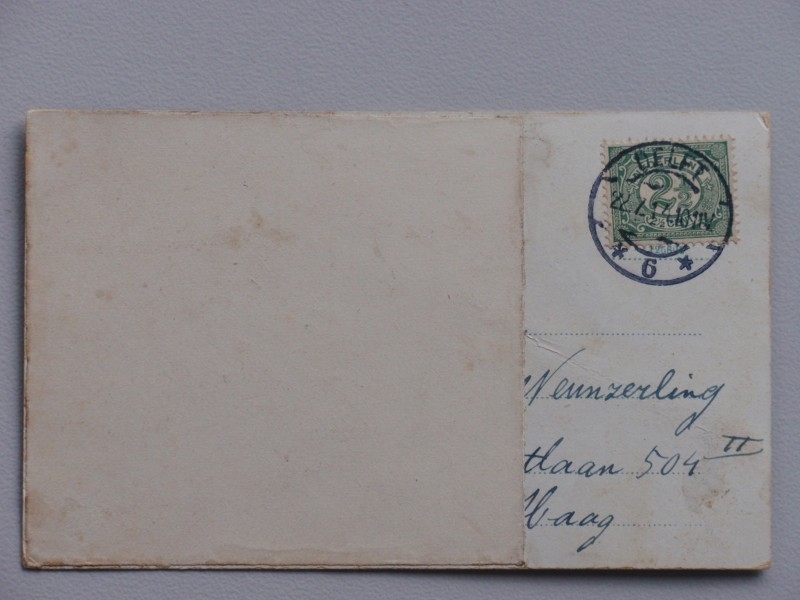 DELFT
2½
* 6 *
Neunzerling
tlaan 504 II
Haag